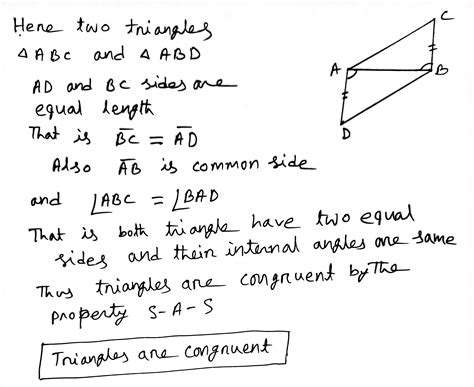 Here two triangles
△ ABC and △ ABD
AD and BC sides are
equal length
That is B̅C̅ = A̅D̅
Also A̅B̅ is common side
and ∠ABC = ∠BAD
That is both triangle have two equal
sides and their internal angles are same
Thus triangles are congruent by the
property S-A-S
Triangles are congruent
C
A
B
D